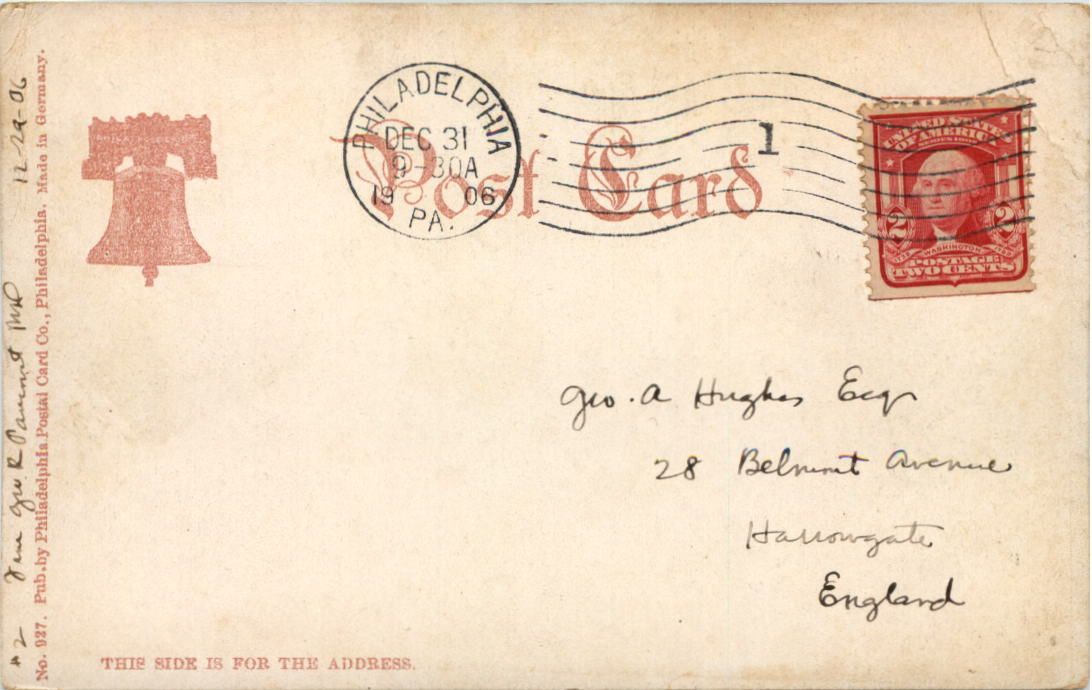 PHILADELPHIA
DEC 31
9-30A
1906
PA.
1
Post Card
UNITED STATES
OF AMERICA
SERIES 1902
2 2
1732 WASHINGTON 1799
POSTAGE
TWO CENTS
Geo. A Hughes Esq
28 Belmont Avenue
Harrowgate
England
THIS SIDE IS FOR THE ADDRESS.
No. 927. Pub. by Philadelphia Postal Card Co., Philadelphia. Made in Germany.
#2 Geo R 12-29-06